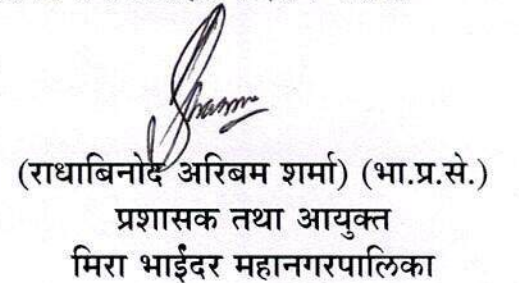 Sharma
(राधाबिनोद अरिबम शर्मा) (भा.प्र.से.)
प्रशासक तथा आयुक्त
मिरा भाईंदर महानगरपालिका